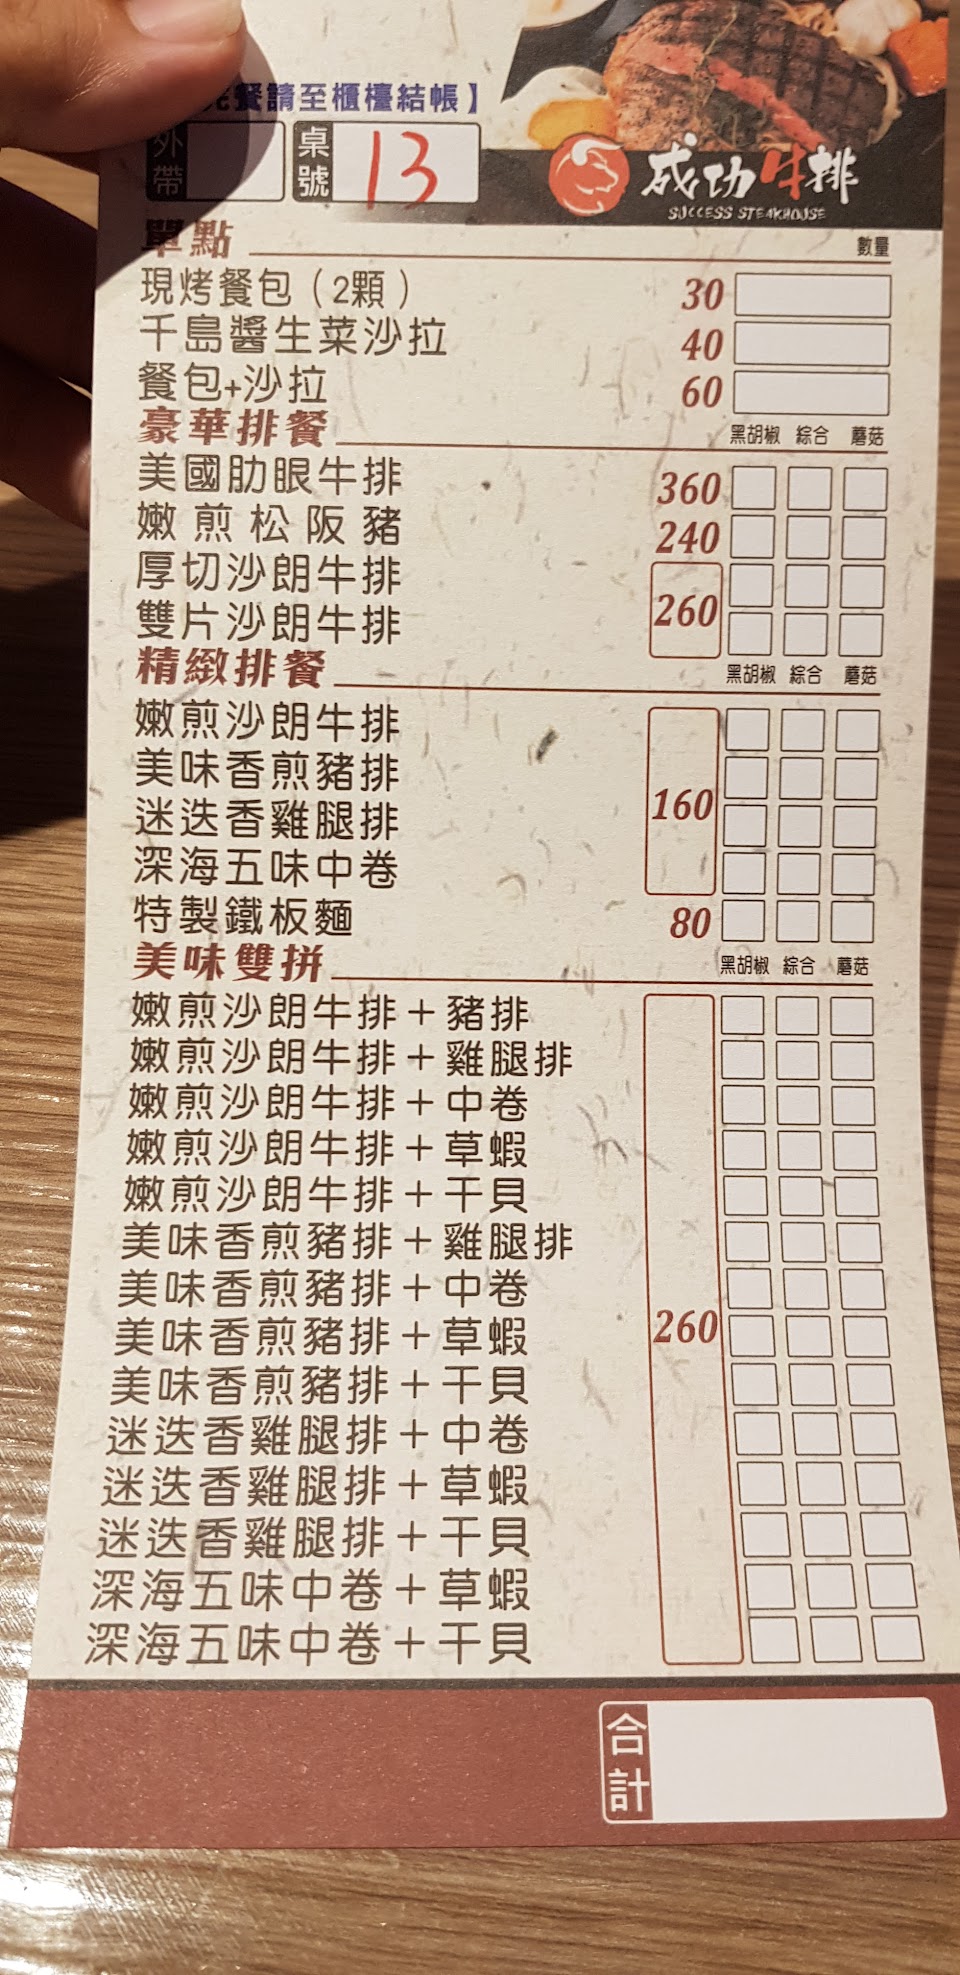 餐請至櫃檯結帳】
外帶
桌號 13
成功牛排
SUCCESS STEAKHOUSE
單點 數量
現烤餐包(2顆) 30
千島醬生菜沙拉 40
餐包+沙拉 60
豪華排餐 黑胡椒 綜合 蘑菇
美國肋眼牛排 360
嫩煎松阪豬 240
厚切沙朗牛排
雙片沙朗牛排
260
精緻排餐 黑胡椒 綜合 蘑菇
嫩煎沙朗牛排
美味香煎豬排
迷迭香雞腿排
深海五味中卷
160
特製鐵板麵 80
美味雙拼 黑胡椒 綜合 蘑菇
嫩煎沙朗牛排+豬排
嫩煎沙朗牛排+雞腿排
嫩煎沙朗牛排+中卷
嫩煎沙朗牛排+草蝦
嫩煎沙朗牛排+干貝
美味香煎豬排+雞腿排
美味香煎豬排+中卷
美味香煎豬排+草蝦
美味香煎豬排+干貝
迷迭香雞腿排+中卷
迷迭香雞腿排+草蝦
迷迭香雞腿排+干貝
深海五味中卷+草蝦
深海五味中卷+干貝
260
合計